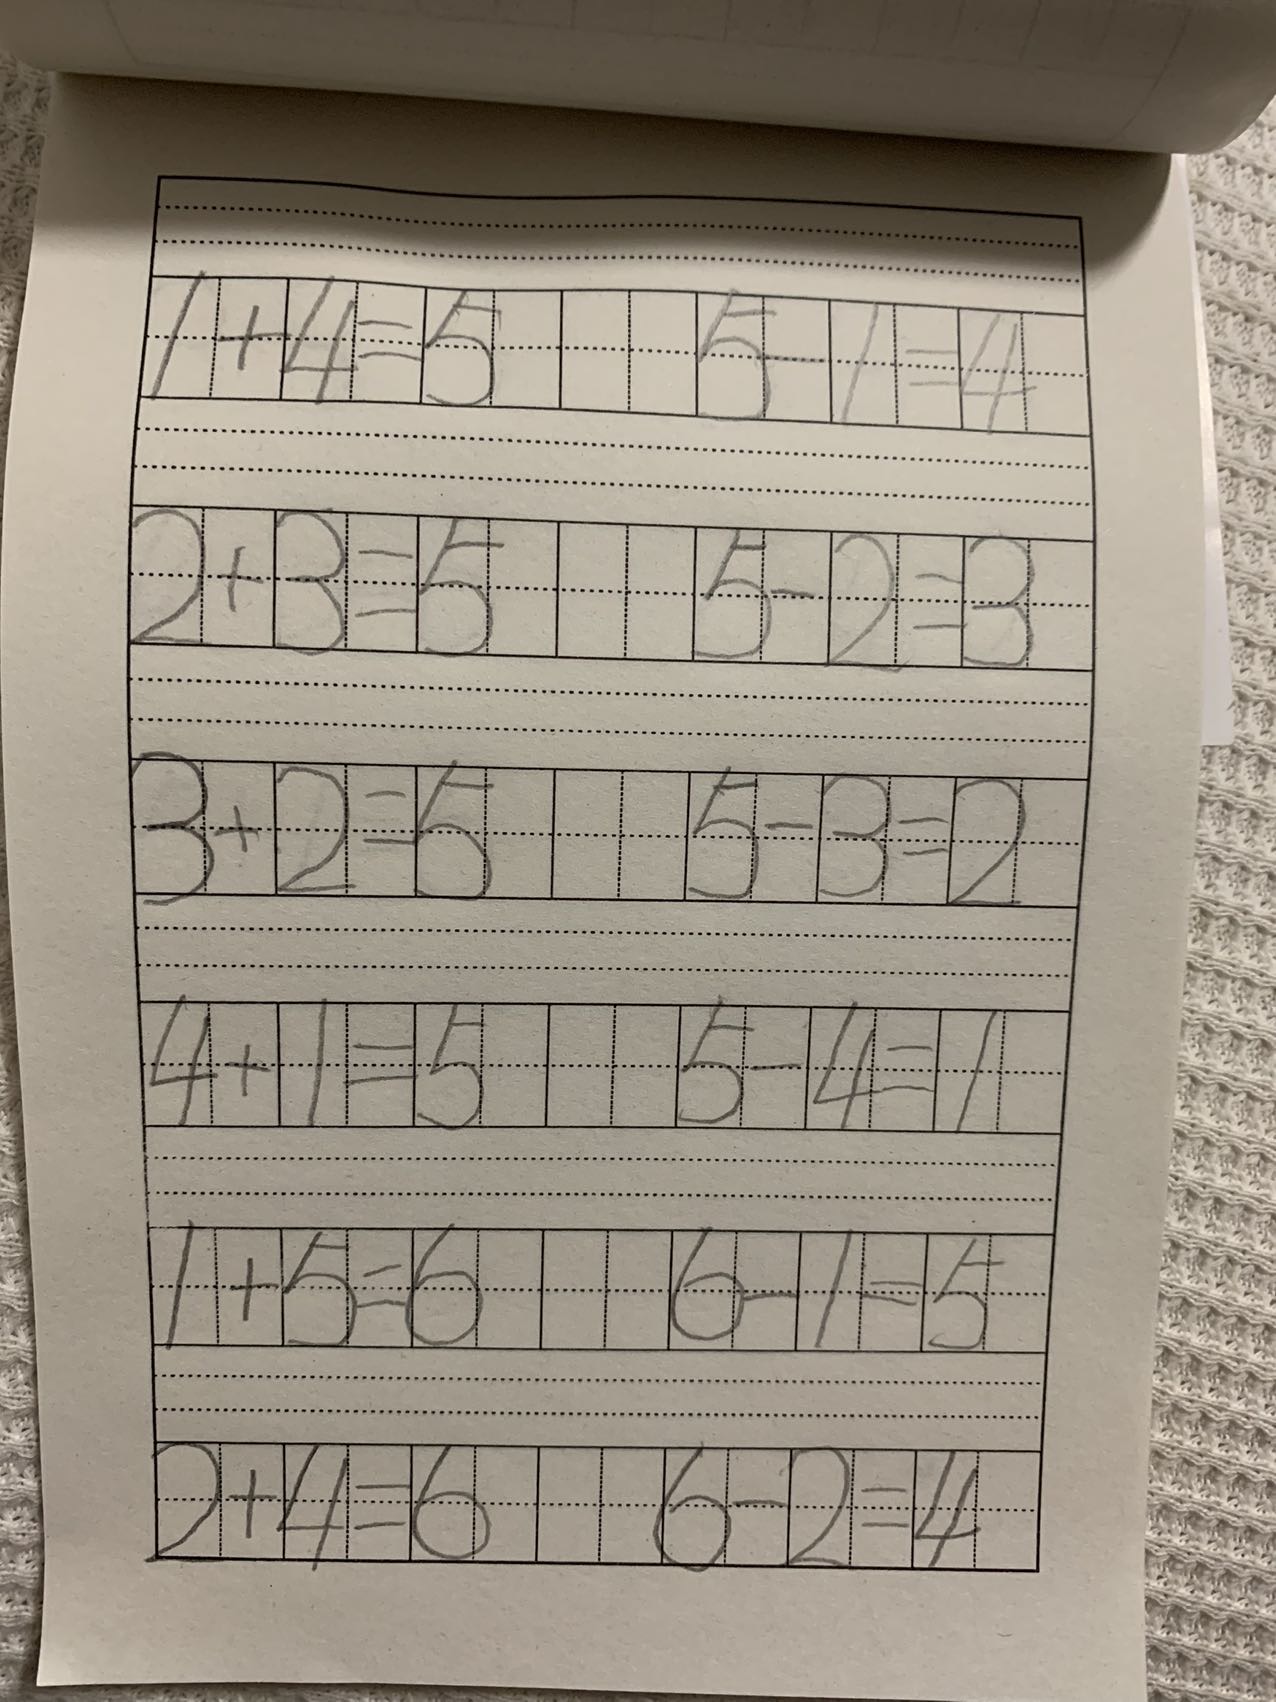 1+4=5 5-1=4
2+3=5 5-2=3
3+2=5 5-3=2
4+1=5 5-4=1
1+5=6 6-1=5
2+4=6 6-2=4